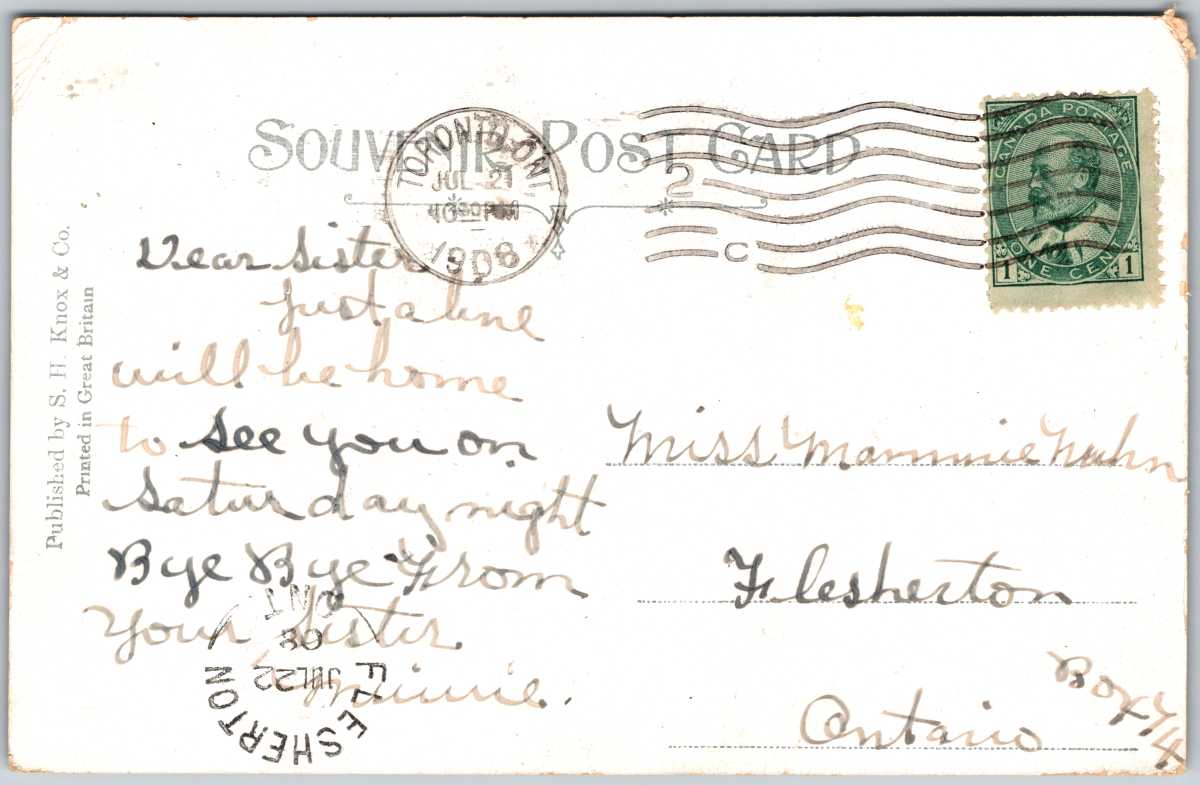 SOUVENIR POST CARD
TORONTO, ONT
JUL 21
PM
1908
2
C
CANADA POSTAGE
ONE CENT
1 1
Published by S. H. Knox & Co.
Printed in Great Britain
Dear Sister
Just a line
will be home
to see you on
Saturday night
Bye Bye From
Your Sister
Minnie.
Miss Mammie
Flesherton
Ontario
Box 74
FLESHERTON
ONT
JUL 22
08